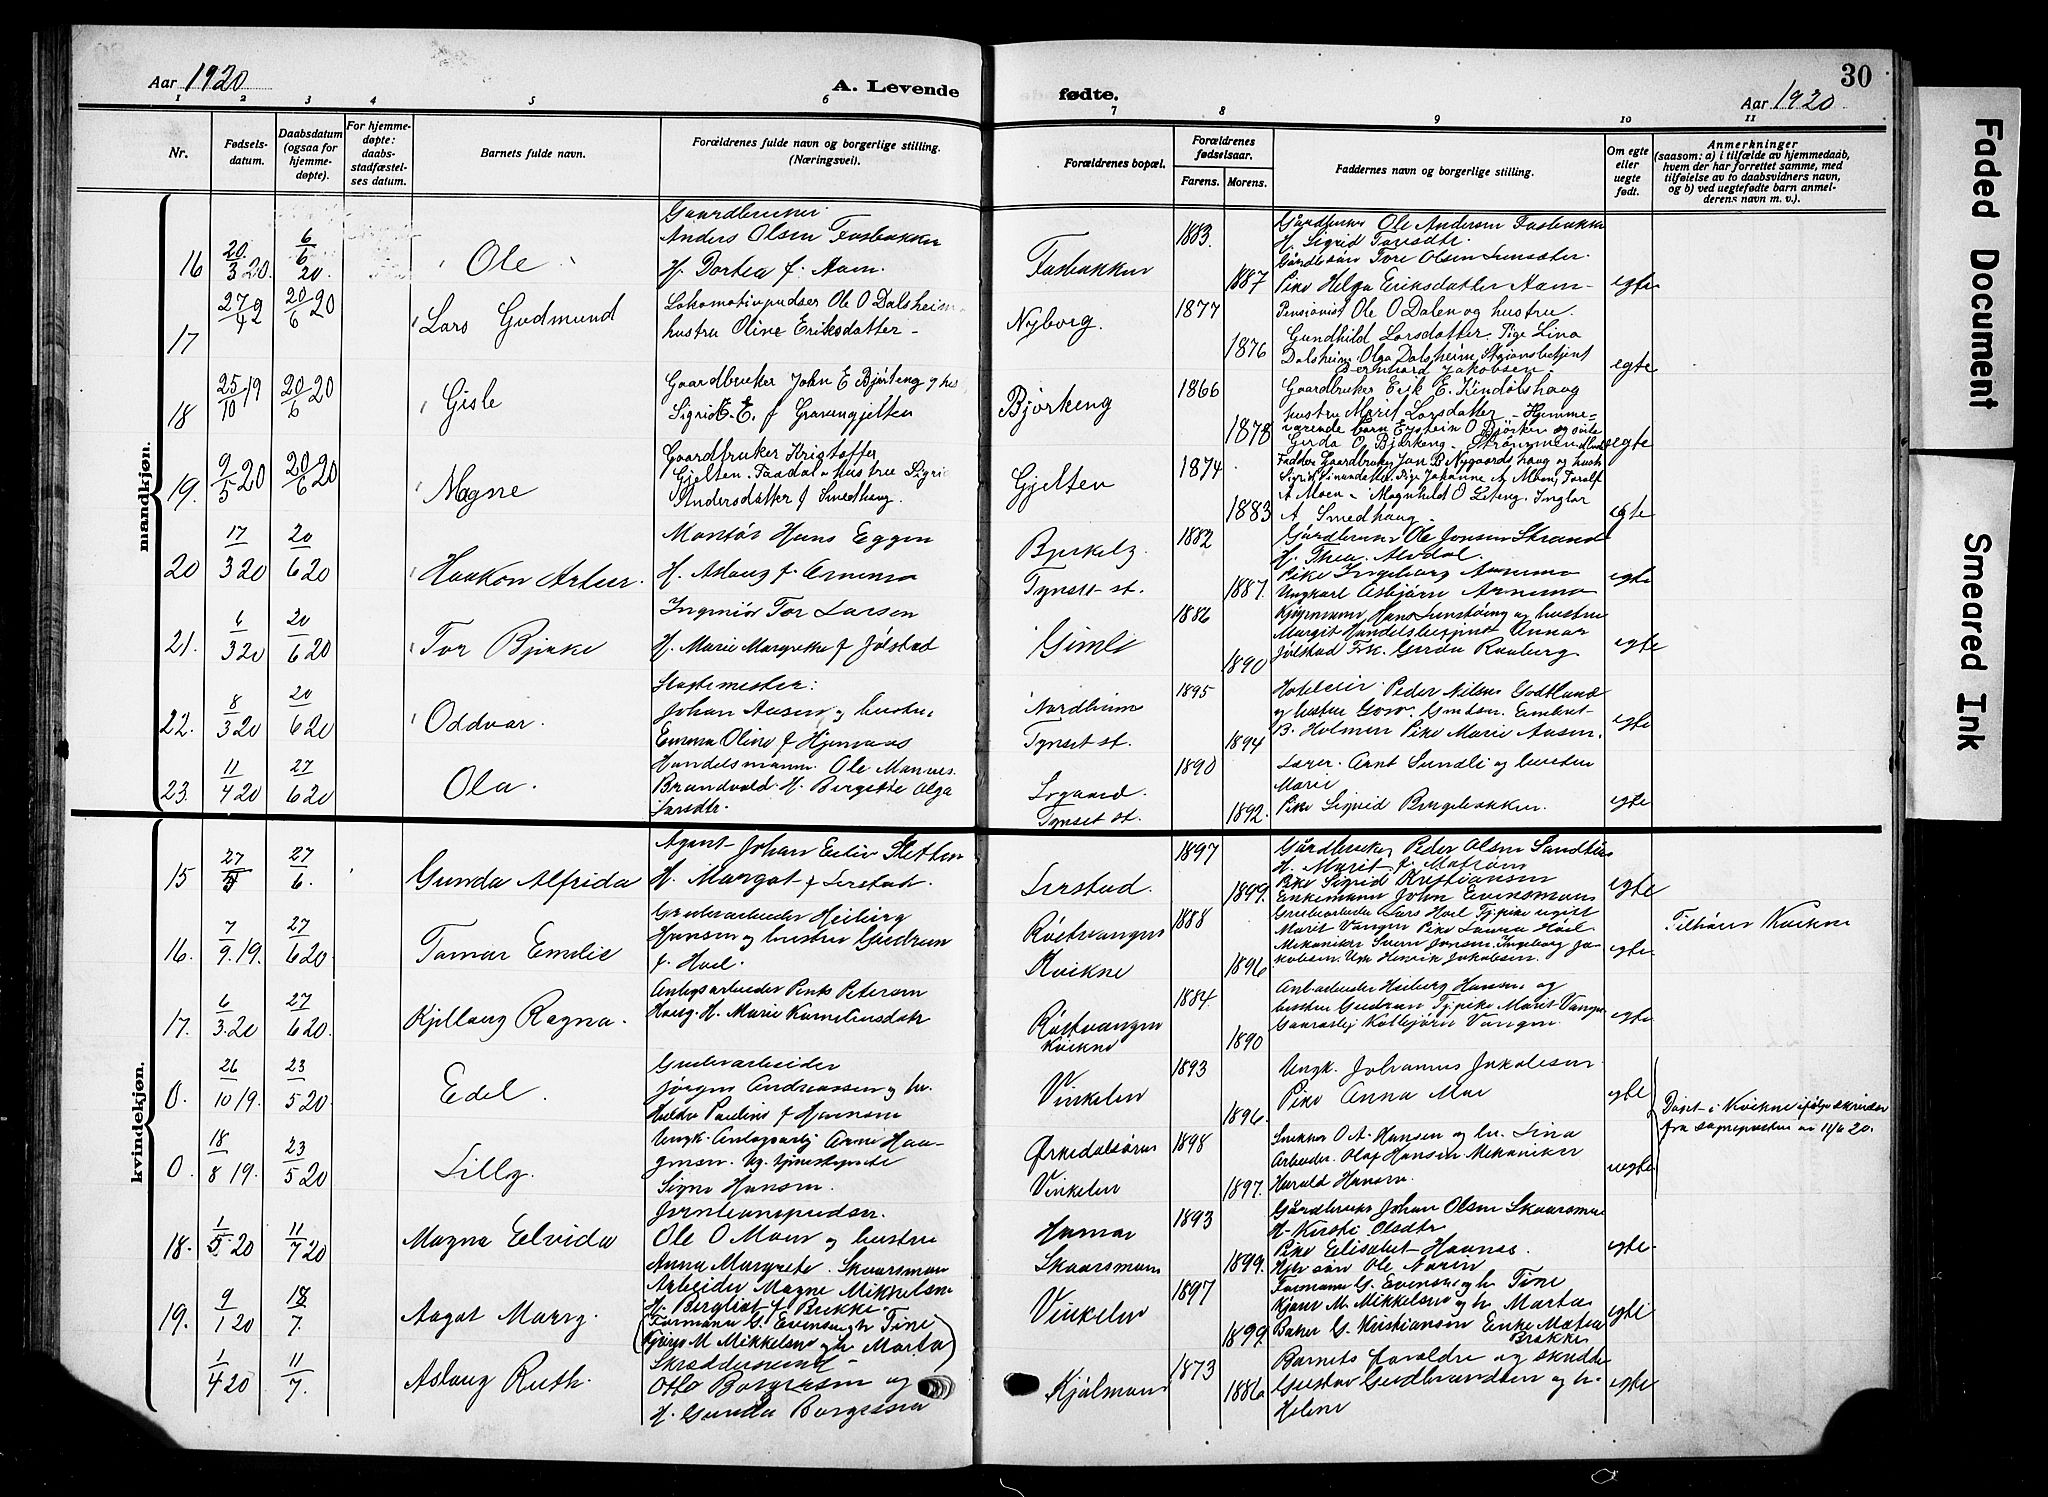 Aar 1920
A. Levende
fødte.
Aar 1920.
30
1 2 3 4 5 6 7 8 9 10 11
Nr.
Fødsels-
datum.
Daabsdatum
(ogsaa for
hjemme-
døpte).
For hjemme-
døpte:
daabs-
stadfæstel-
ses datum.
Barnets fulde navn.
Forældrenes fulde navn og borgerlige stilling.
(Næringsvei).
Forældrenes bopæl.
Forældrenes
fødselsaar.
Farens. Morens.
Faddernes navn og borgerlige stilling.
Om egte
eller
uegte
født.
Anmerkninger
(saasom: a) i tilfælde av hjemmedaab,
hvem der har forrettet samme, med
tilføielse av to daabsvidners navn,
og b) ved uegtefødte barn anmel-
derens navn m. v.).
mandkjøn.
16 20/3 20. 6/6 20 Ole
Gaardbruker
Anders Olsen Fasbakken
H. Dortea f. Aam.
Fasbakken
1883.
1887
Gårdbruker Ole Andersen Fasbakken
H. Sigrid Toresdtr.
Tore Olsen
Pike Helga Eriksdatter Aam
egte
17 20/6 20 Lars Gudmund
Lokomotivpudser Ole O Dalsheim
hustru Oline Eriksdatter
Nyborg.
1877
1876
Pensionist Ole O Dalen og hustru
Gundhild Larsdatter. Pige Lina
Dalsheim, Olga Dalsheim, Stasjonsbetjent
Bernhard Jakobsen
egte
18 25/10 19 20/6 20 Gisle
Gaardbruker John E Bjørkeng
Sigrid E. E. f Gravengjelten
Bjørkeng
1866
1878
Gaardbruker Erik E.
hustru Marit Larsdatter Hjemme-
værende barn Eystein O Bjørken
Gerda O Bjørkeng
egte
19. 9/5 20 20/6 20 Magne
Gaardbruker Kristoffer
Gjelten. hustru Sigri
Andersdatter f Smedhaug.
Gjelten
1874
1883
Gaardbruker Jon B Nygaardshaug
A Moen Magnhild O Liteng. Inglar
A Smedhaug
egte
20 17/3 20 20/6 20 Haakon Artur.
Montør Hans Eggen
H. Aslaug f. Arnemo
Tynset st.
1882
1887.
Gårdbruker Ole Jonsen Strand
H. Thea Alvdal.
Pike Ingeborg Arnemo
Ungkarl Asbjørn Arnemo
egte
21. 6/3 20 20/6 20 Tor Bjerke
Ingeniør Tor Larsen
H. Marie Margrethe f Jølstad
Gimle
1886
1890
Kjøpmann Hans og hustru
Margit Handelsbetjent Annar
Jølstad Frk. Gerda
egte
22. 8/3 20 20/6 20 Oddvar.
Johan Aasen og hustru
Emma Oline f
Nordheim
Tynset st.
1895
1894
Hoteleier Peder Nilsen Godtland
og hustru Embret
B. Holmen Pike Marie Aasen.
egte
23. 11/4 20 27/6 20 Ola.
Handelsmann Ole
Brandvold. H. Birgitte Olga
Larsdtr.
Tynset st.
1890
1892.
Lærer Arnt Sundli og hustru
Marie
Pike Sigrid Borgebakken.
egte
kvindekjøn.
15 27/6. Gunda Alfrida
Agent Johan Eeliv Sletten
H. Margot f Lerstad.
Lerstad.
1897
1899.
Gårdbruker Peder Olsen
H. Marit f.
Pike Sigrid Kristiansen
Enkemann John Evensmann
egte
16. 7/9. 19. 27/6 20. Tamar Emelie
Grubearbeider Heiberg
Hansen og hustru Gudrun
f. Hoel.
Røstvangen
Kvikne
1888
1896
Grubearbeider Lars Hoel
Marit Vangen Pike Laura Hoel
Mekaniker Svein Jonsen. Ingeborg Ja-
kobsen. Henrik Jakobsen.
egte
Tilhører Kvikne
17. 6/3. 20 27/6 20. Kjellaug Ragna.
Anlegsarbeider Petersen
Haug. H. Marie Karneliusdatr
Røstvangen
Kvikne
1884
1890
Anl. arbeider Heiberg Hansen og
hustru Gudrun Tj.pike Marit Vangen
Gaardsarb Kolbjørn Vangen.
egte
0. 26/10 19. 23/5 20. Edel.
Grubearbeider
Jørgen Andreassen og hu.
Hulda Pauline f Hansen
Vinkelen
1893
1896.
Ungk. Johannes Jakobsen.
Pike Anna Moe
egte
Døpt i Kvikne ifølge skrivelse
fra sognepresten av 11/6 20.
0. 18/8 19. 23/5 20 Lilly.
Ungk. Anlægsarb Arne Haa-
gensen. Ug. tjenestepike
Signe Hansen.
Ørkedalsøren
Vinkelen
1898
1897.
Snekker O A. Hansen og hu. Lina
Arbeider Olaf Hansen Mekaniker
Harald Hansen.
uegte
18. 1/5. 20 11/7 20 Magna Elvida
Jernbanepudser
Ole O Moen og hustru
Anna Margrete. Skaarsmoen
Hamar
Skaarsmoen
1893
1899.
Gårdbruker Johan Olsen Skaarsmoen
H. Kirsti Olsdtr
Pike Elisabet Haanes.
Hjv søn Ole Noren
egte.
19. 9/1 20 18/7. Aagot Marry.
Arbeider Magne Mikkelsen
H. Bergliot f Brekke.
(Formann G. Evensen og h Tine
M Mikkelsen og h Marta)
Vinkelen
1897
1899
Formann G. Evensen og h. Tine
M. Mikkelsen og h. Marta
Baker G. Kristiansen Enke
Brekke
egte
1/4 20 11/7. Aslaug Ruth.
Skræddersvend
Otto Borgersen og
H. Gunda Borgersen
Kjølmoen
1873
1886
Barnets forældre og
Gustav Gudbrandsen og h.
Helene
egte
Faded Document
Smeared Ink